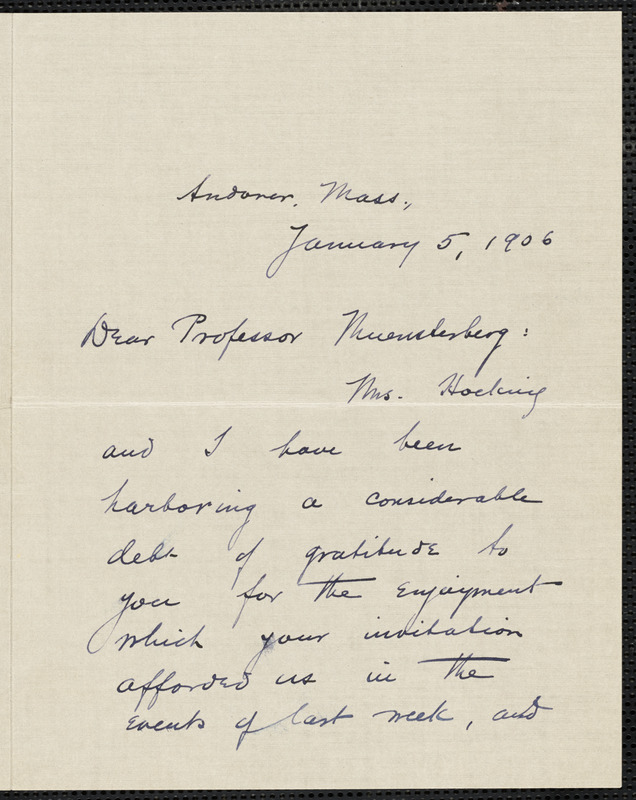 Andover, Mass.,
January 5, 1906
Dear Professor Muensterberg:
Mrs. Hocking
and I have been
harboring a considerable
debt of gratitude to
you for the enjoyment
which your invitation
afforded us in the
events of last week, and